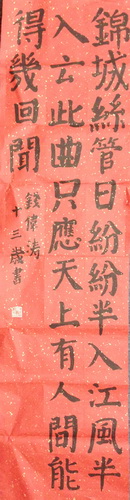 錦城絲管日紛紛半入江風半
入云此曲只應天上有人間能
得幾回聞
錢偉濤
十三歲書